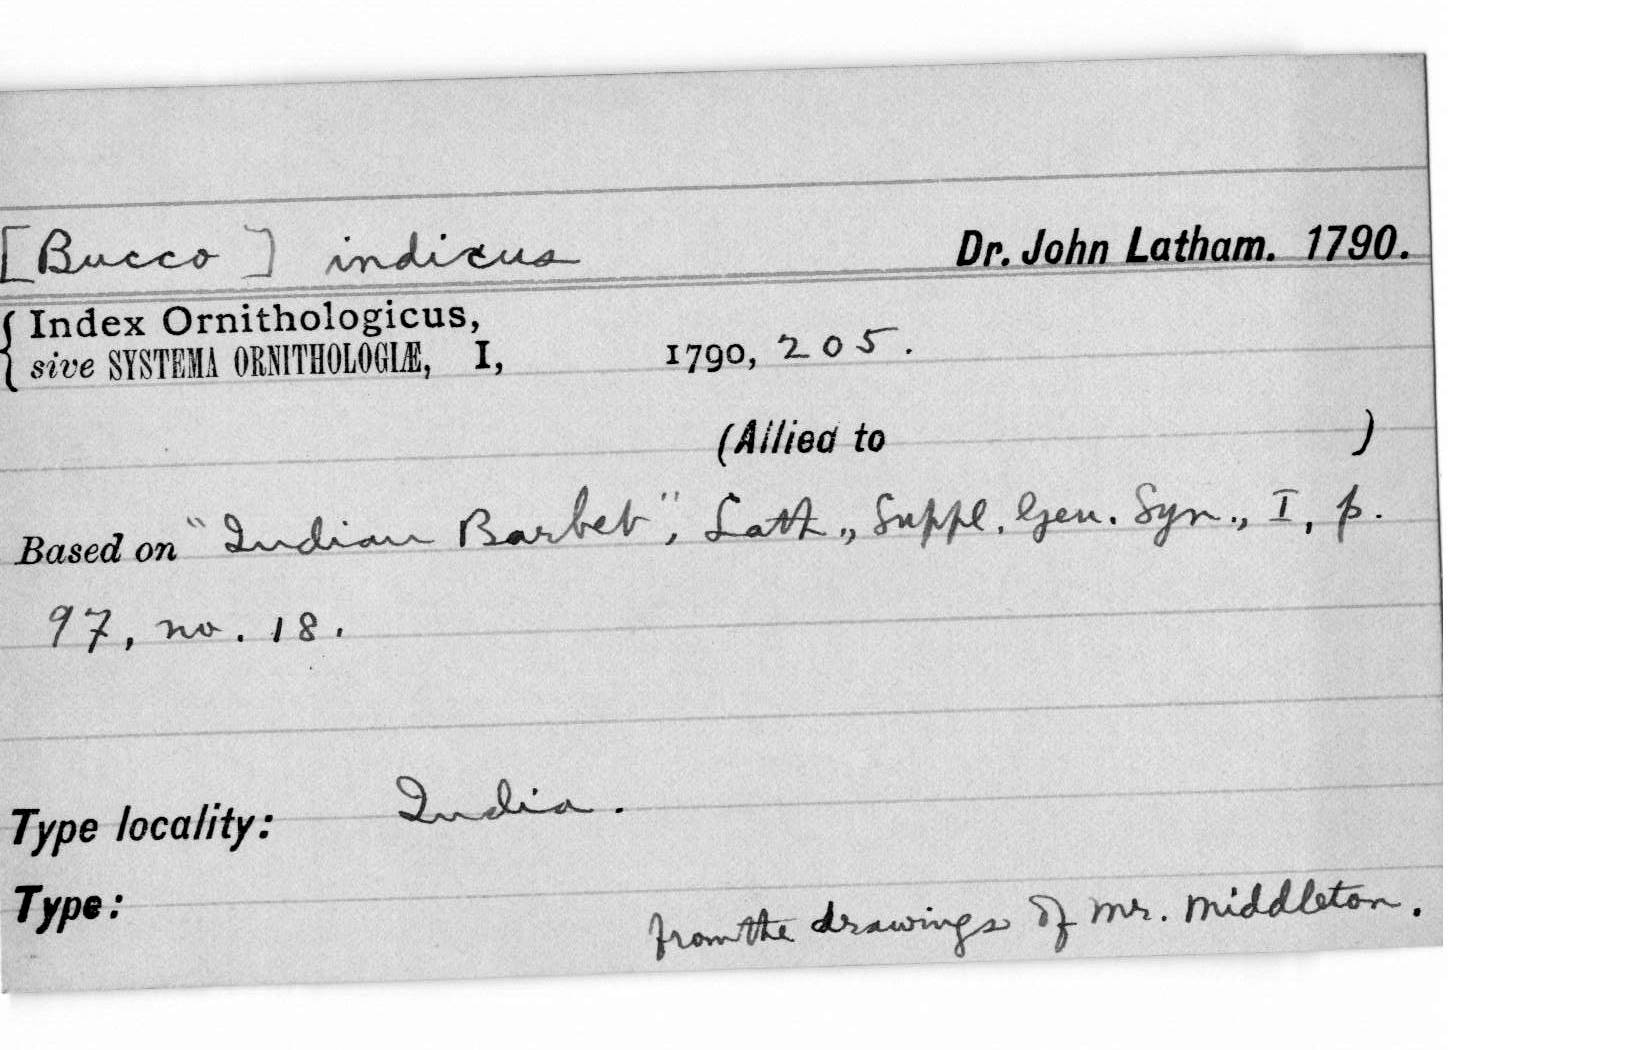 [Bucco] indicus Dr. John Latham. 1790.
Index Ornithologicus,
sive SYSTEMA ORNITHOLOGIÆ, I, 1790, 205.
(Allied to )
Based on "Indian Barbet", Lath., Suppl. Gen. Syn., I, p.
97, no. 18.
Type locality: India.
Type: from the drawings of Mr. Middleton.